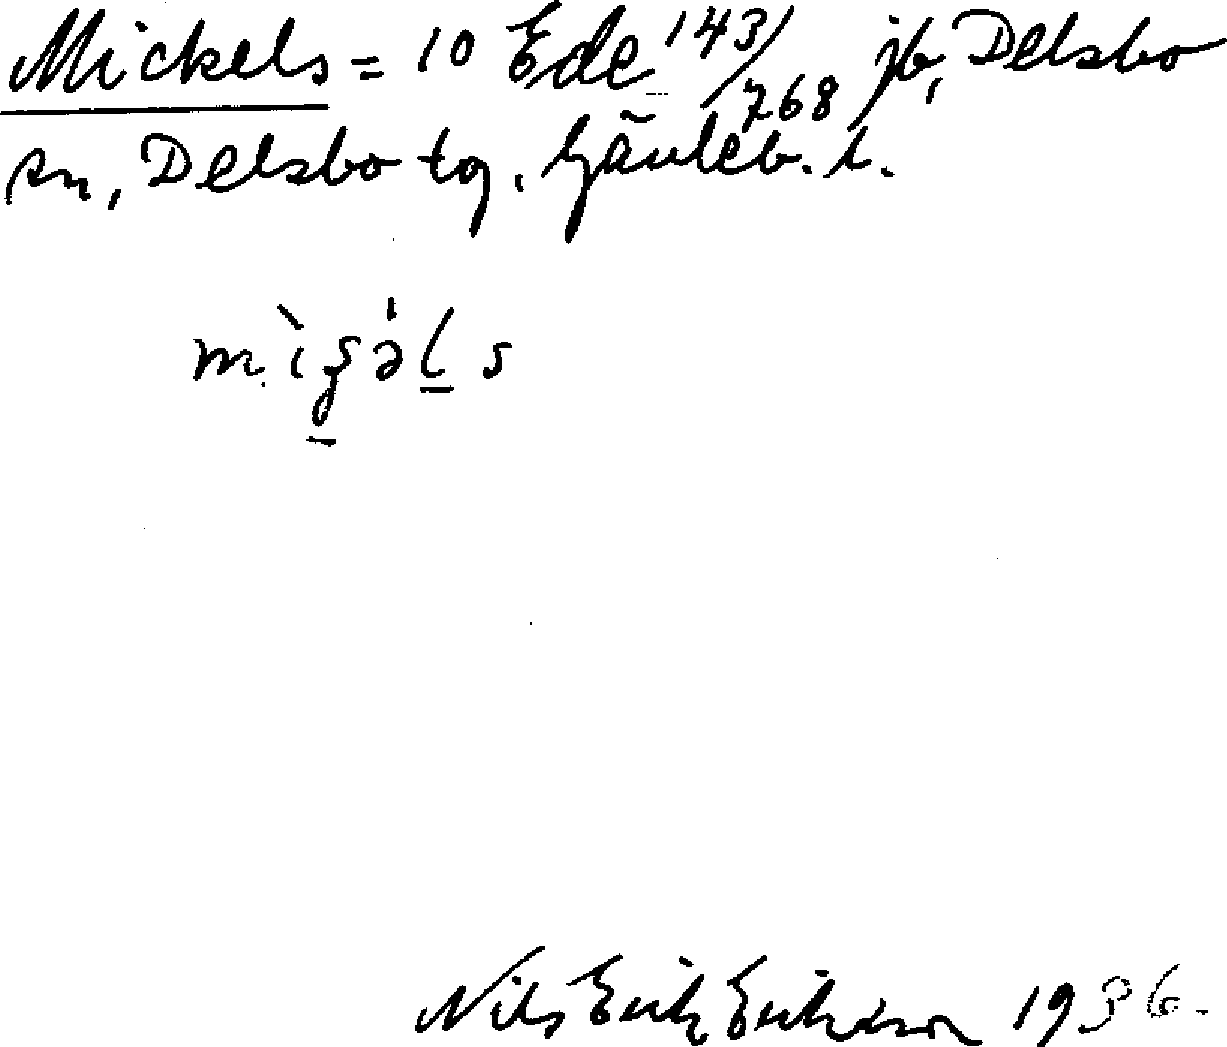 Mickels = 10 Ede 143/768 jb, Delsbo
sn, Delsbo tg. Gävleb. l.
Nils Erik Eriksson 1936.